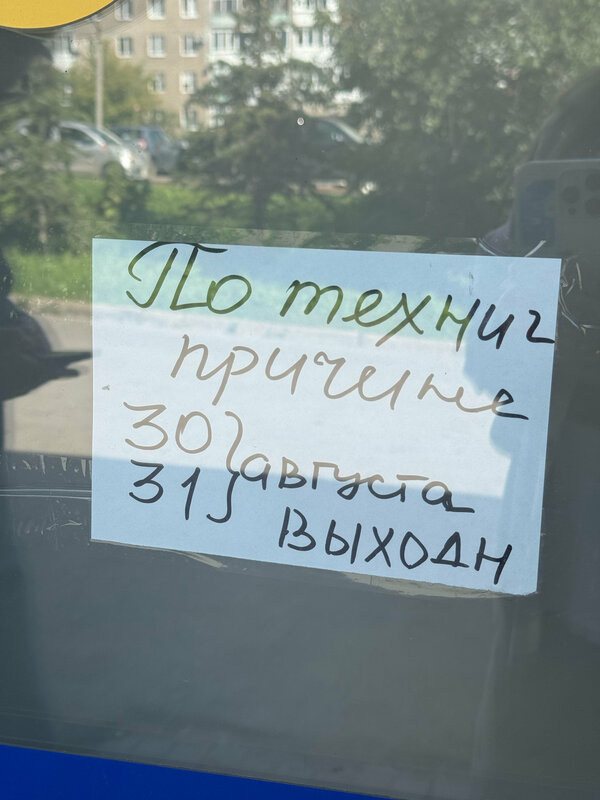 По технич
причине
30 } августа
31 }
выходн